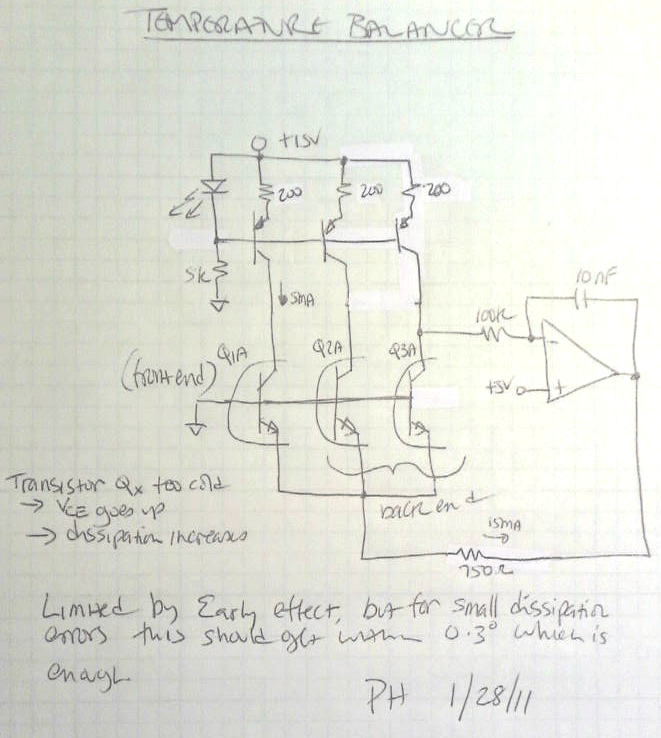 TEMPERATURE BALANCER
+15V
200
200
200
5k
5mA
10nF
100k
+5V
(front end)
Q1A
Q2A
Q3A
back end
15mA
750Ω
Transistor Qx too cold
→ VCE goes up
→ dissipation increases
Limited by Early effect, but for small dissipation
errors this should get within 0.3° which is
enough
PH 1/28/11